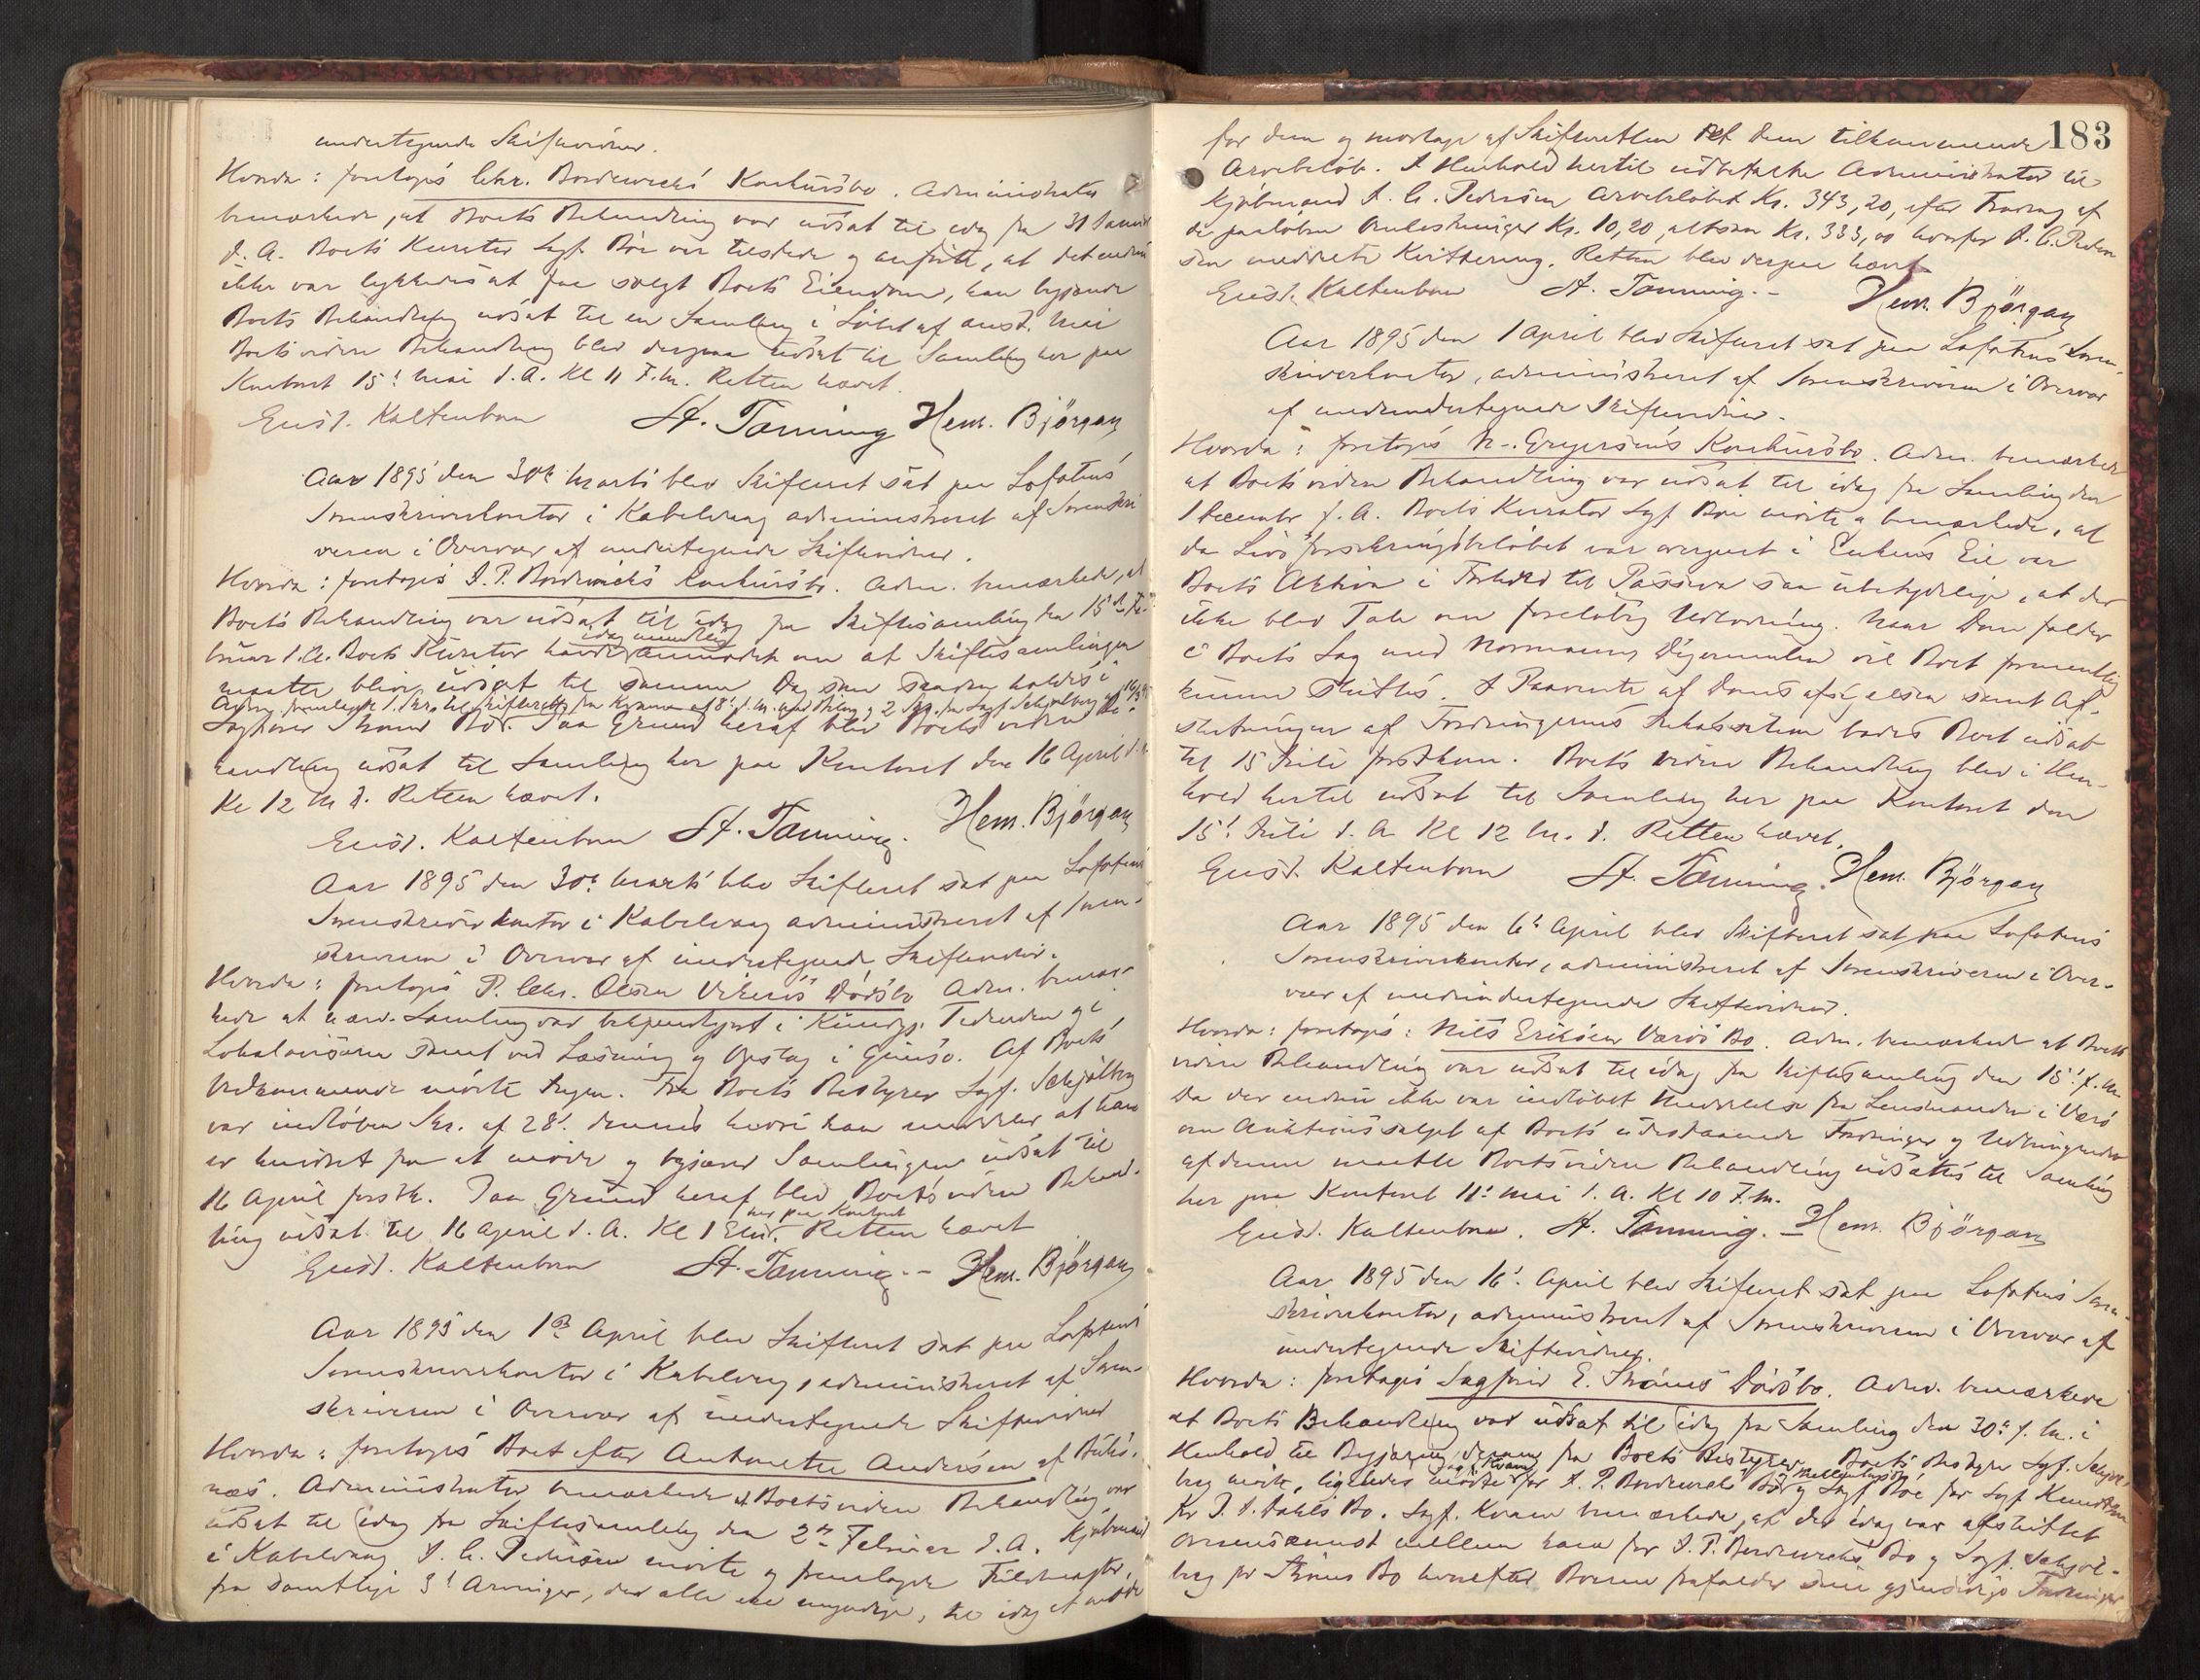 undertegnede Skiftevidner.
Hvorda: foretoges Chr. Bordewichs Konkursbo. Administrator
bemærkede, at Boets Behandling var udsat til idag fra 31 Januar
d. A. Boets Kurator Sagf. Böe var tilstede og anførte, at det endnu
ikke var lykkedes at faa solgt Boets Eiendom, han begjærede
Boets Behandling udsat til en Samling i Löbet af anst. Mai
Boets videre Behandling blev derpaa udsat til Samling her paa
Kontoret 15d Mai d. A. Kl 11 F.M. Retten hævet.
Gust. Kaltenborn St. Tønning Hem. Björgan
Aar 1895 den 30te Marts blev Skifteret sat paa Lofotens
Sorenskriverkontor i Kabelvaag administreret af Sorenskri
veren i Overvær af undertegnede Skiftevidner.
Hvorda: foretoges I. P. Bordewichs Konkursbo. Adm. bemærkede, at
Boets Behandling var udsat til idag fra Skiftesamling den 15de Fe-
bruar d. A. Boets Kurator havde idag mundtlig anmodet om at Skiftesamlingen
maatte blive udsat til samme Dag som Samling holdes i
Sagförer Strøms Bo. Paa Grund heraf blev Boets videre Be-
handling udsat til Samling her paa Kontoret den 16 April d. A.
Kl 12 M. D. Retten hævet.
Gust. Kaltenborn St. Tønning. Hem. Björgan
Aar 1895 den 30te Marts blev Skifteret sat paa Lofotens
Sorenskriverkontor i Kabelvaag administreret af Soren-
skriveren i Overvær af undertegnede Skiftevidner.
Hvorda: foretoges P. Chr. Olsen Vikerös Dödsbo Adm. bemær-
kede at nærv. Samling var bekjendtgjort i Kundgj. Tidende og i
Lokalaviserne samt ved Læsning og Opslag i Gimsö. Af Boets
Vedkommende mödte Ingen. Fra Boets Bestyrer Sagf. Schjölberg
var indlöben Skr. af 28d. dennes hvori han meddeler at han
er hindret fra at møde og begjærer Samlingen udsat til
16 April förstk. Paa Grund heraf blev Boets videre Behand-
ling udsat til 16 April d. A. Kl 1 Emd. her paa Kontoret Retten hævet
Gust. Kaltenborn St. Tønning.- Hem. Björgan
Aar 1895 den 1ste April blev Skifteret sat paa Lofotens
Sorenskriverkontor i Kabelvaag, administreret af Soren-
skriveren i Overvær af undertegnede Skiftevidner
Hvorda: foretoges Boet efter Antonette Andersen af
næs. Administrator bemærkede at Boets videre Behandling var
udsat til idag fra Skiftesamling den 2den Februar d. A. Kjöbmand
i Kabelvaag I. C. Pedersen mödte og fremlagde Fuldmagter
fra samtlige 3d Arvinger, der alle ere myndige, til idag at møde
183
for dem og modtage af Skifteretten det dem tilkommende
Arvebelöb. I Henhold hertil udbetalte Administrator til
Kjöbmand I. C. Pedersen Arvebelöbet Kr. 343,20, efter Fradrag af
de paalöbne Omkostninger Kr. 10,20, altsaa Kr. 333,00 hvorfor I. C. Peder
sen meddelte Kvittering. Retten blev derpaa hævet
Gust. Kaltenborn St. Tønning.- Hem. Björgan
Aar 1895 den 1 April blev Skifteret sat paa Lofotens Soren-
skriverkontor, administreret af Sorenskriveren i Overvær
af medundertegnede Skiftevidner.
Hvorda: foretoges N. Gregersens Konkursbo. Adm. bemærkede
at Boets videre Behandling var udsat til idag fra Samling den
1 December f. A. Boets Kurator Sagf Böe mödte og bemærkede, at
da Livsforsikringsbelöbet var overgaaet i Enkens Eie var
Boets Aktiva i Forhold til Passiva saa ubetydelige, at der
ikke blev Tale om foreløbig Udlodning. Naar Dom falder
i Boets Sag mod Normanns Digermulen vil Boet formentlig
kunne sluttes. I Paavente af Doms afsigelsen samt Af-
slutningen af Fordringernes Inkassation bades Boet udsat
til 15 Juli förstkom. Boets videre Behandling blev i Hen-
hold hertil udsat til Samling her paa Kontoret den
15d Juli d. A Kl 12 M. D. Retten hævet.
Gust. Kaltenborn St. Tønning. Hem. Björgan
Aar 1895 den 6te April blev Skifteret sat paa Lofotens
Sorenskriverkontor, administreret af Sorenskriveren i Over-
vær af medundertegnede Skiftevidner.
Hvorda: foretoges: Nils Eriksen Værös Bo. Adm. bemærkede at Boets
videre Behandling var udsat til idag fra Skiftesamling den 15d f. M.
Da der endnu ikke var indlöbet Meddelelse fra Lensmanden i Værö
om Auktionssalget af Boets udestaaende Fordringer og Udbringendet
af denne maatte Boets videre Behandling udsættes til Samling
her paa Kontoret 11d Mai d. A. Kl 10 F.M.
Gust. Kaltenborn. St. Tønning.- Hem. Björgan
Aar 1895 den 16d April blev Skifteret sat paa Lofotens Soren-
skriverkontor, administreret af Sorenskriveren i Overvær af
undertegnede Skiftevidner.
Hvorda: foretoges Sagförer E. Ströms Dödsbo. Adm. bemærkede
at Boets Behandling var udsat til idag fra Samling den 30te f. M. i
Henhold til Begjæring derom fra Boets Bestyrer. Boets Bestyrer Sagf. Schjøl-
berg mödte, ligeledes mödte Sagf. Kvam for I. P. Bordewichs Bo og Sagf Böe for Sagf
for Dahls Bo. Sagf. Kvam bemærkede, at der idag var afsluttet
Overenskomst mellem ham for I. P. Bordewichs Bo og Sagf. Schjøl-
berg for Ströms Bo hvorefter Boerne frafalder sine gjensidige Fordringer